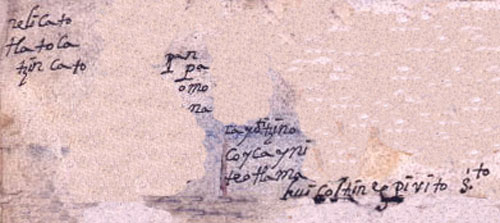 nesicato
tlatoca
tzin cato
pan
ipa
omo
na
cayotzino
coycayni
teotlama
huicoltin espirito s.to